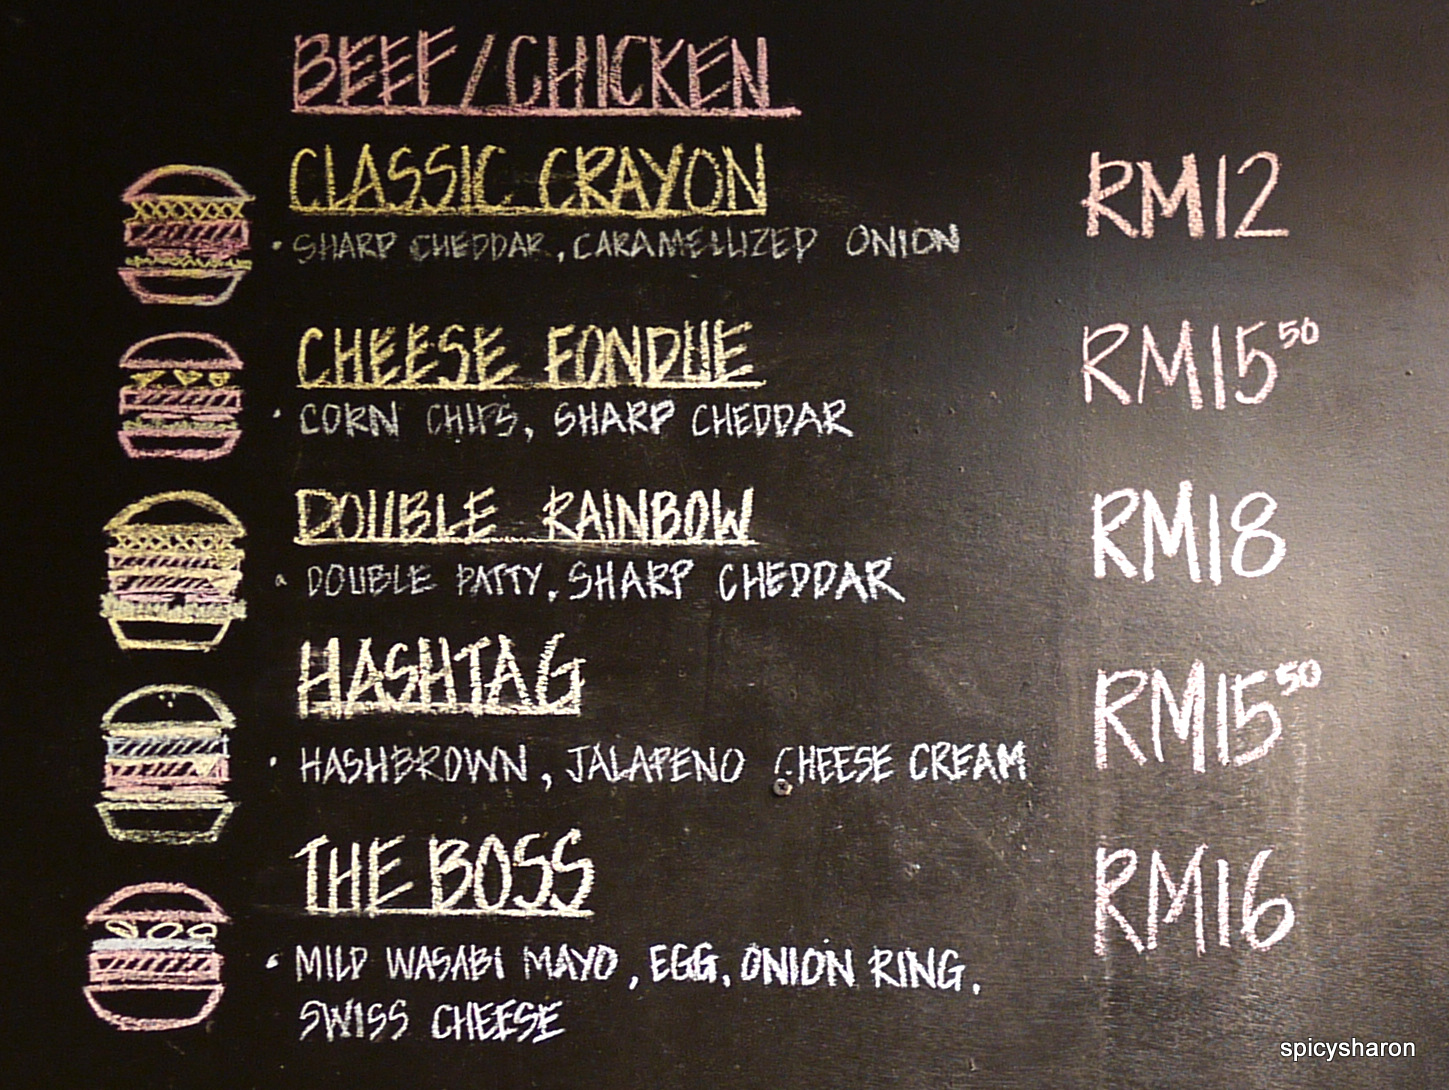 BEEF/CHICKEN
CLASSIC CRAYON RM12
• SHARP CHEDDAR, CARAMELLIZED ONION
CHEESE FONDUE RM15 50
• CORN CHIPS, SHARP CHEDDAR
DOUBLE RAINBOW RM18
• DOUBLE PATTY, SHARP CHEDDAR
HASHTAG RM15 50
• HASHBROWN, JALAPENO CHEESE CREAM
THE BOSS RM16
• MILD WASABI MAYO, EGG, ONION RING,
SWISS CHEESE
spicysharon